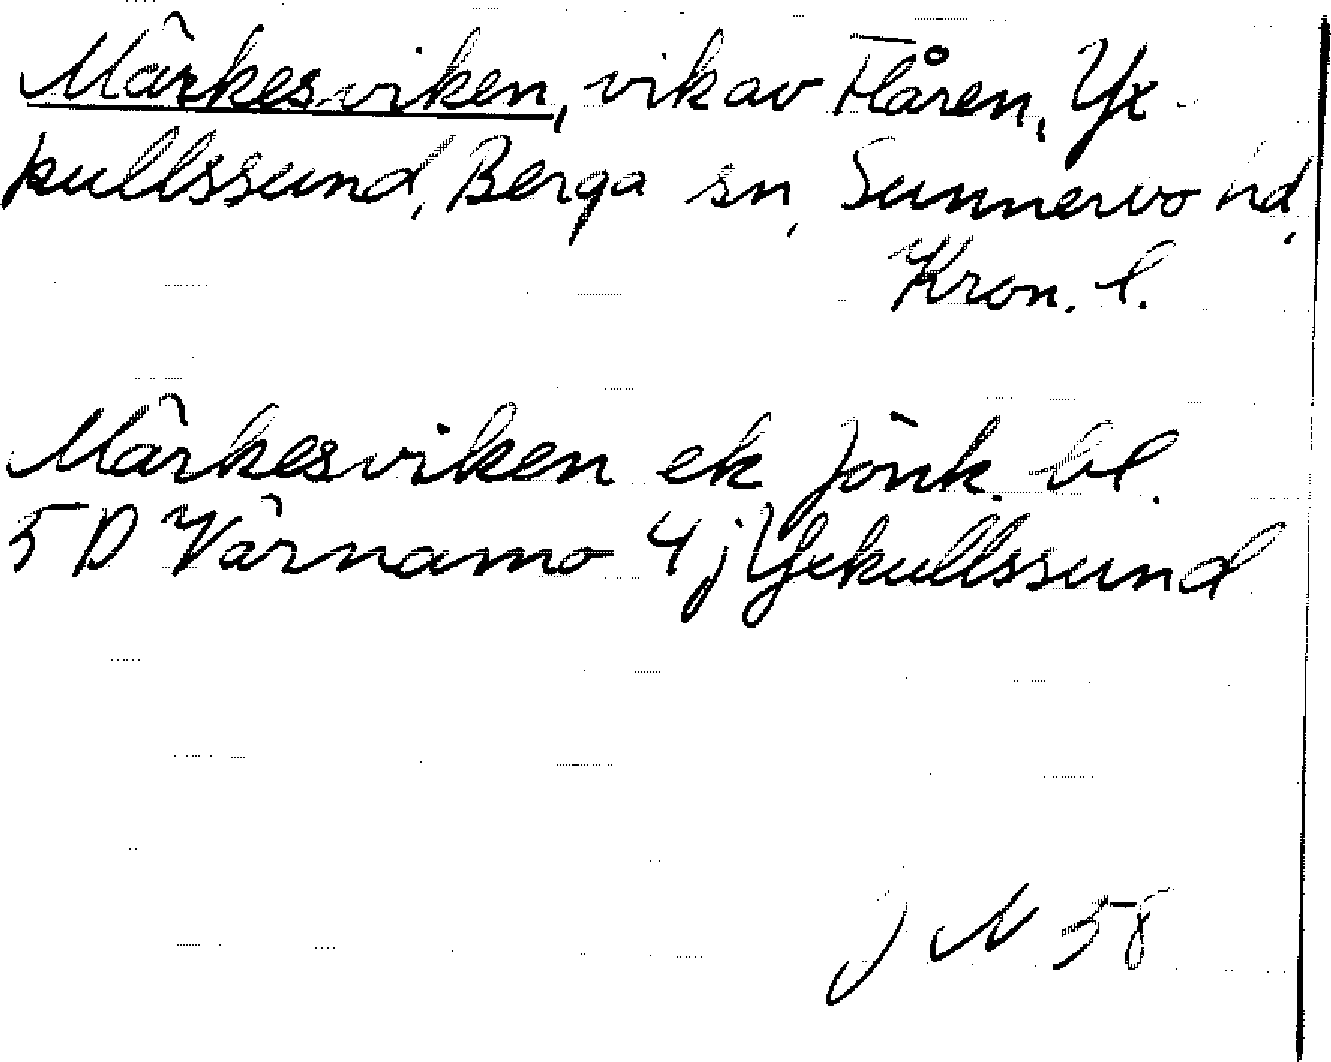 Märkesviken, vik av Flåren, Yx-
kullssund, Berga sn, Sunnerbo hd,
Kron. l.
Märkesviken ek Jönk. bl.
5D Värnamo 4j Yxkullssund
J N 58